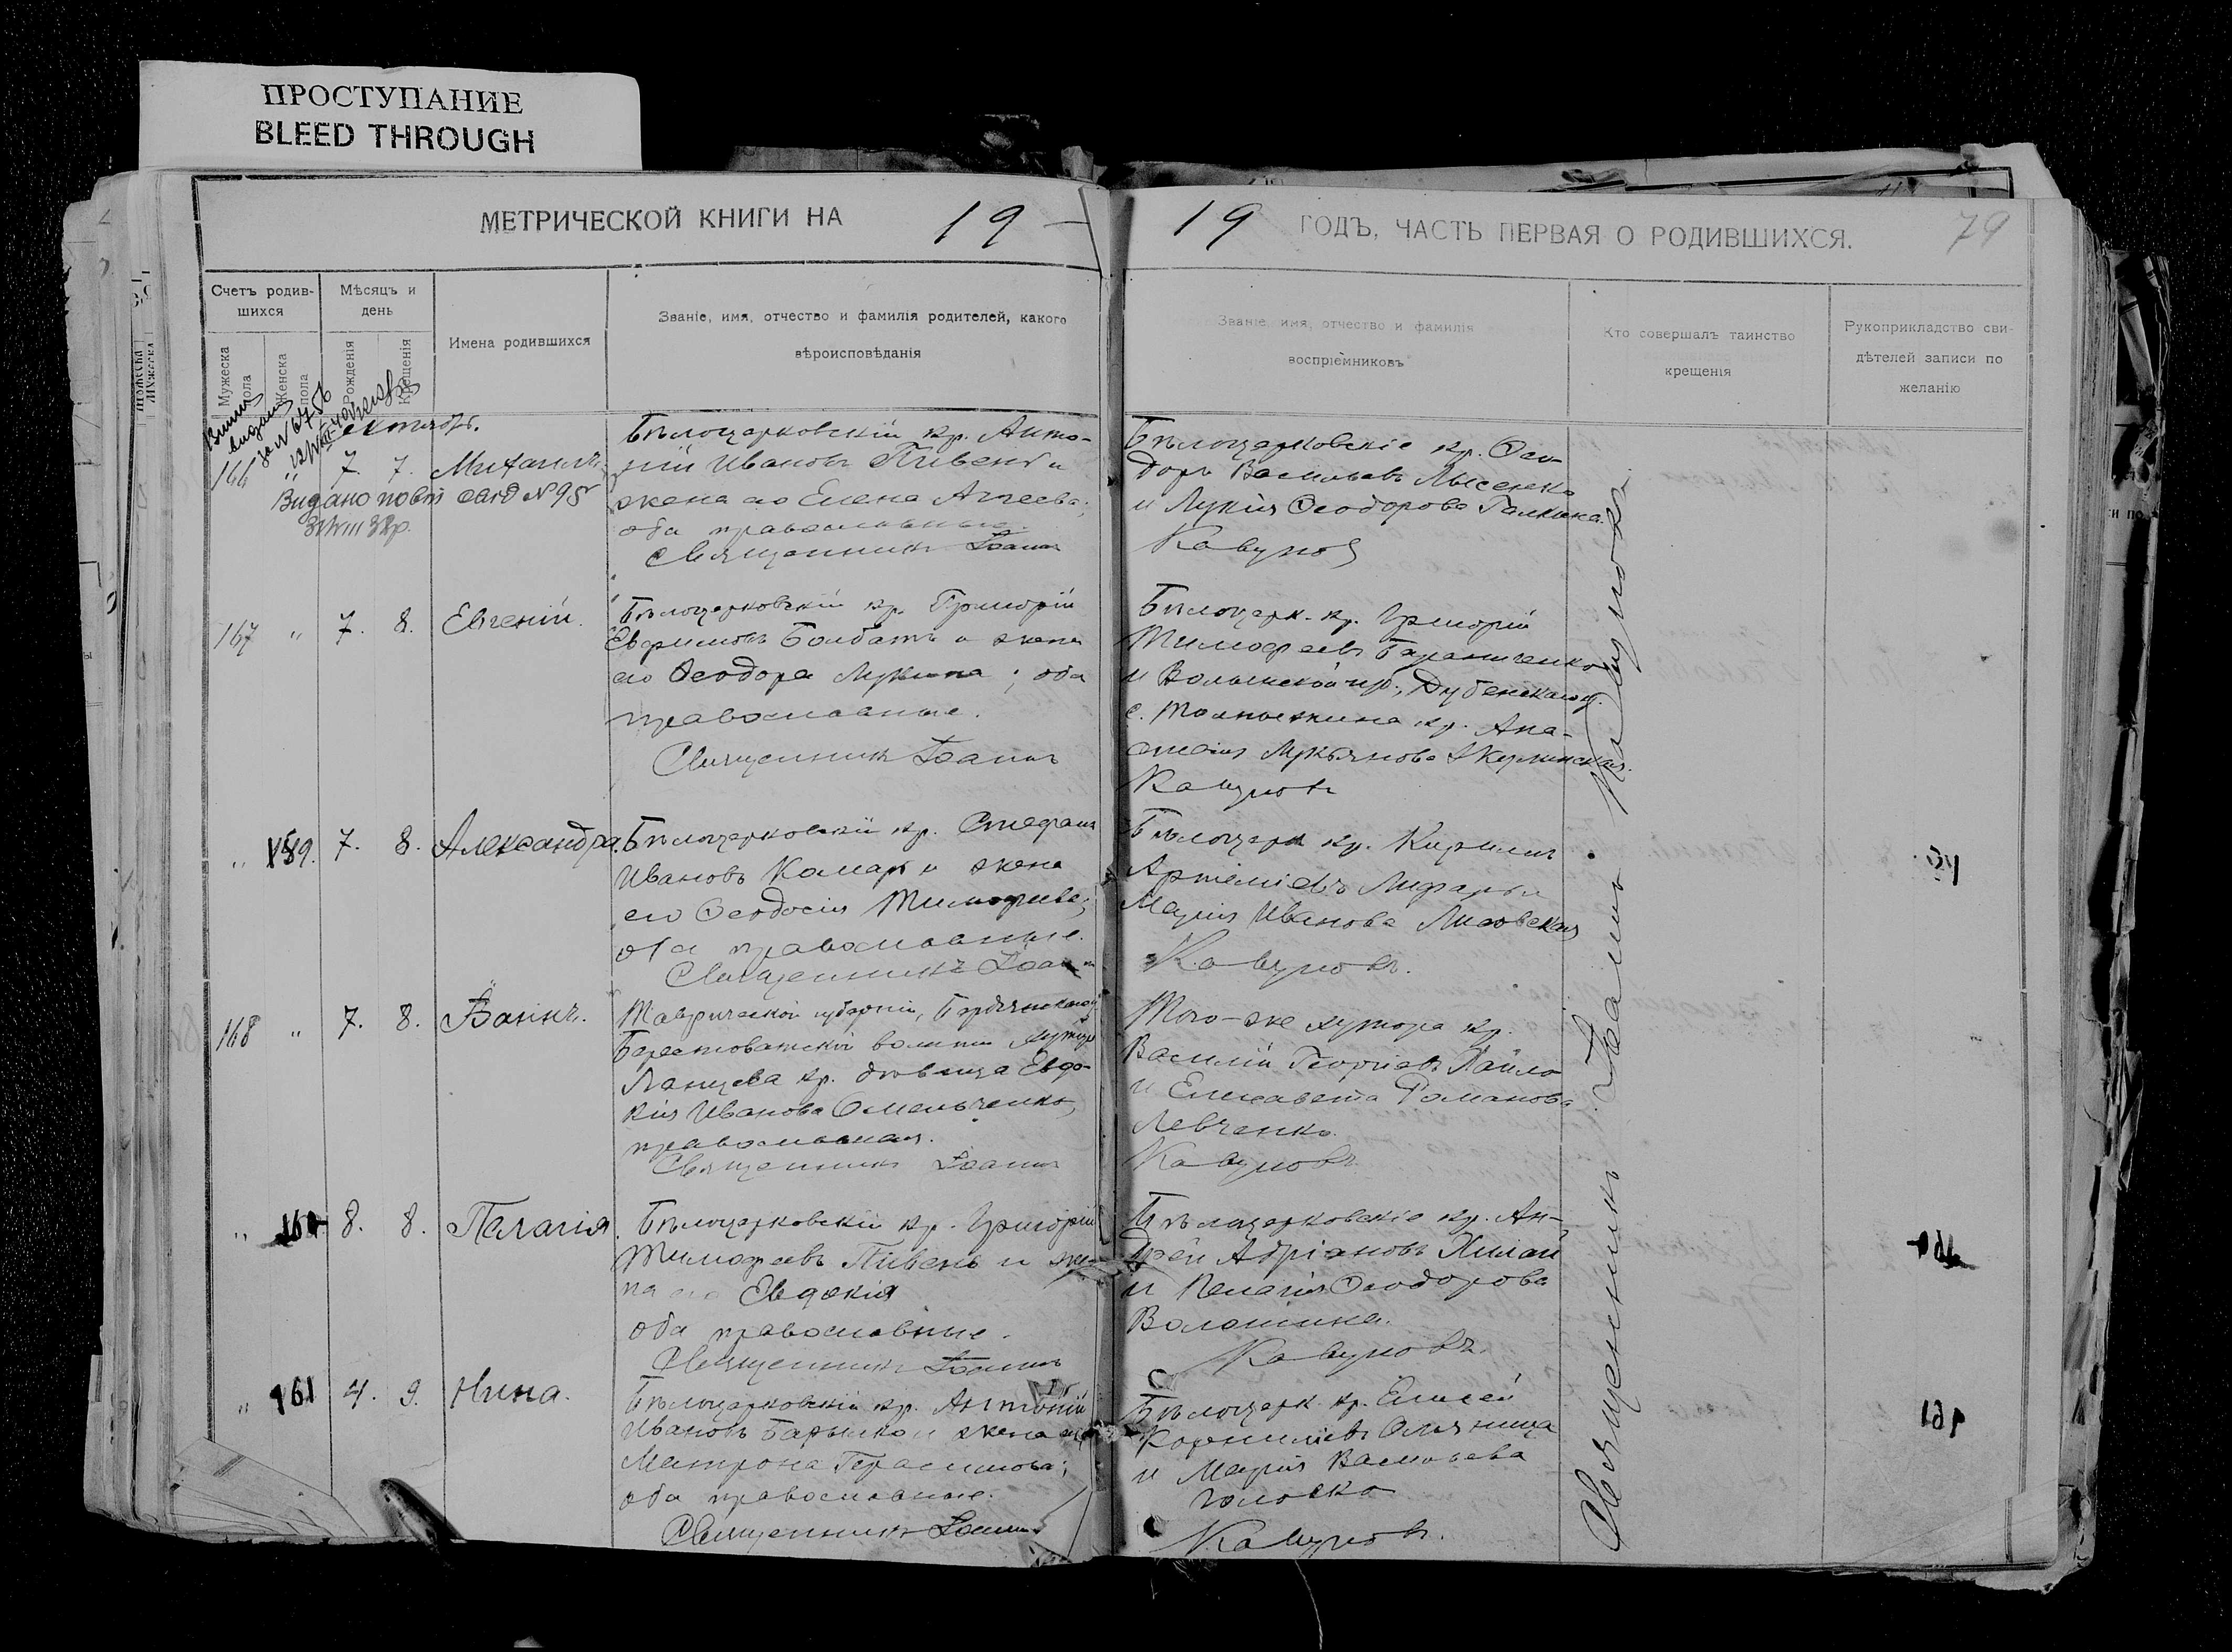 ПРОСТУПАНИЕ
BLEED THROUGH
МЕТРИЧЕСКОЙ КНИГИ НА 19 —
19 ГОДЪ, ЧАСТЬ ПЕРВАЯ О РОДИВШИХСЯ. 79
Счетъ родив-
шихся
Мужеска пола
Женска пола
Мѣсяцъ и
день
Рожденія
Крещенія
Имена родившихся
Званіе, имя, отчество и фамилія родителей, какого
вѣроисповѣданія
Званіе, имя, отчество и фамилія
воспріемниковъ
Кто совершалъ таинство
крещенія
Рукоприкладство сви-
дѣтелей записи по
желанію
166 " 7. 7. Михаилъ.
Видано повт свід №95
31/VIII 32р.
Бѣлоцерковскій кр. Анто-
ній Ивановъ Пивень и
жена его Елена Агеева;
оба православные.
Священникъ Іоаннъ
Бѣлоцерковскіе кр. Ѳео-
доръ Васильевъ Лысенко
и Лукія Ѳеодорова Галкина.
Кавуновъ
167 " 7. 8. Евгеній.
Бѣлоцерковскій кр. Григорій
Евфимовъ Болбатъ и жена
его Ѳеодора Лукина; оба
православные.
Священникъ Іоаннъ
Бѣлоцерк. кр. Григорій
Тимофеевъ Бараниченко
и Волынской гу., Дубенскаго у.
кр. Ана-
стасія Лукьянова
Кавуновъ
" 159. 7. 8. Александра.
Бѣлоцерковскій кр. Стефанъ
Ивановъ Комаръ и жена
его Ѳеодосія Тимофеева;
оба православные.
Священникъ Іоаннъ
Бѣлоцерк кр. Кириллъ
Артеміевъ Лифарь и
Марія Иванова Лисовская
Кавуновъ.
168 " 7. 8. Іоаннъ.
Таврической губерніи, Бердянскаго у.
Берестоватской волости хутора
кр. дѣвица Евдо-
кія Иванова Омельченко,
православная.
Священникъ Іоаннъ
Того-же хутора кр.
Василій Георгіевъ
и Елисавета Романова
Левченко.
Кавуновъ.
" 160 8. 8. Пелагія.
Бѣлоцерковскій кр. Григорій
Тимофеевъ Пивень и же-
на его Евдокія
оба православные.
Священникъ Іоаннъ
Бѣлоцерковскіе кр. Ан-
дрей Адріановъ
и Пелагія Ѳеодорова
Волошина.
Кавуновъ.
" 161 4. 9. Нина.
Бѣлоцерковскій кр. Антоній
Ивановъ Барышко и жена его
Матрона Герасимова;
оба православные.
Священникъ Іоаннъ
Бѣлоцерк. кр. Елисей
Корниліевъ Оляница
и Марія Васильева
Головко
Кавуновъ.
Священникъ Іоаннъ Кавуновъ